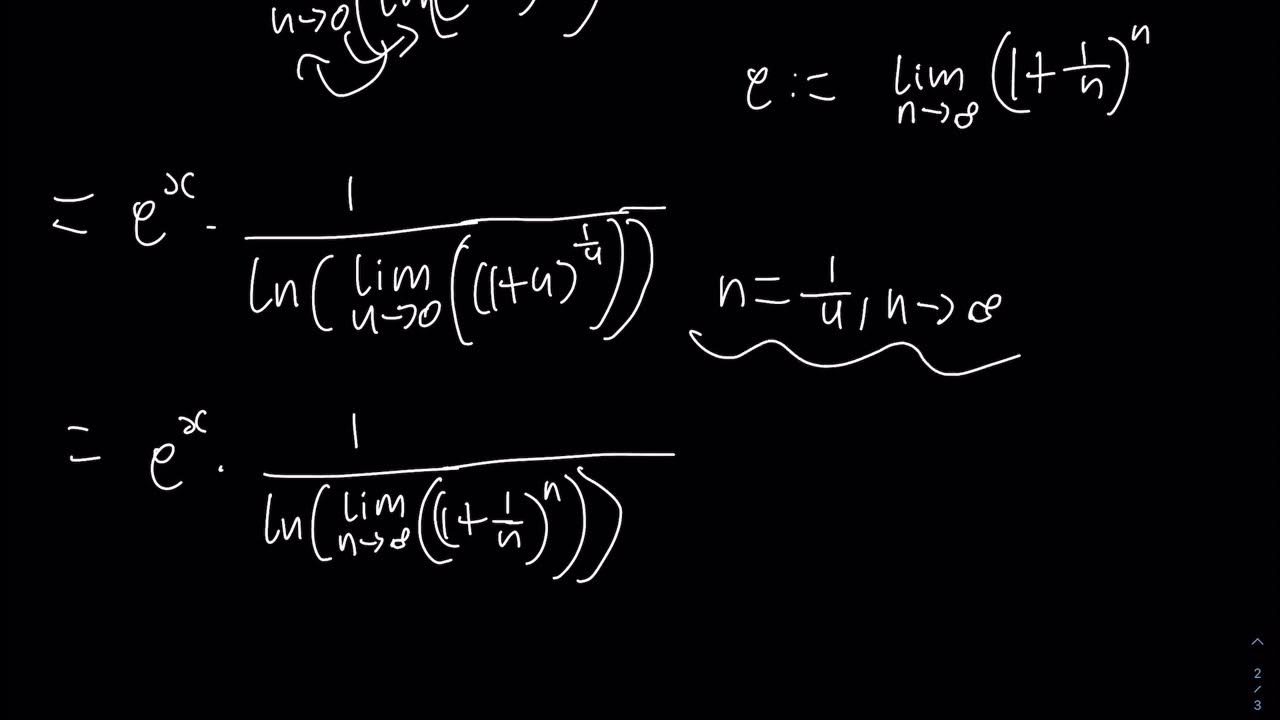 n→0(lim(
e := lim n→∞ (1+1/n)^n
= e^x · 1/ln(lim u→0 ((1+u)^(1/u)))
n = 1/u, n→∞
= e^x · 1/ln(lim n→∞ ((1+1/n)^n))
2/3